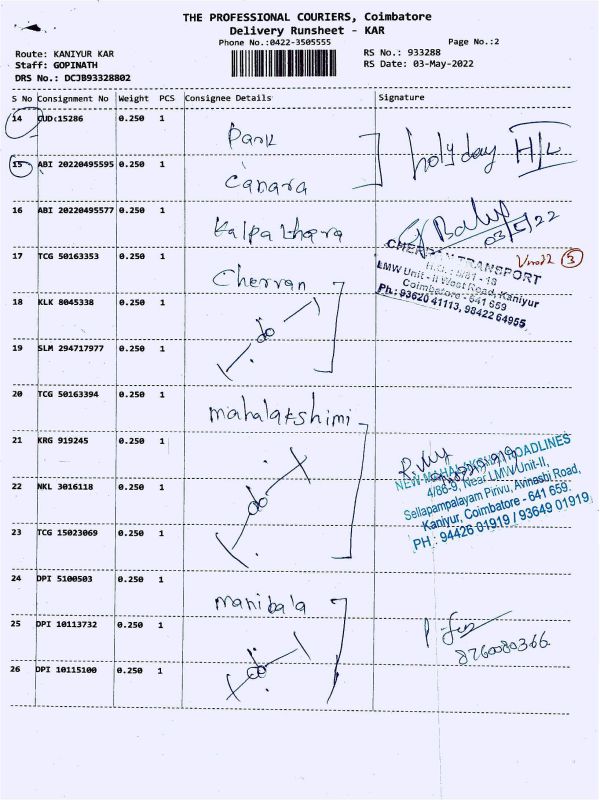 THE PROFESSIONAL COURIERS, Coimbatore
Delivery Runsheet - KAR
Phone No.:0422-3505555
Page No.:2
Route: KANIYUR KAR
RS No.: 933288
Staff: GOPINATH
RS Date: 03-May-2022
DRS No.: DCJB93328802
S No Consignment No Weight PCS Consignee Details Signature
14 CUD 15286 0.250 1 Park
holyday H/L
15 ABI 20220495595 0.250 1 Canara
16 ABI 20220495577 0.250 1
03/5/22
17 TCG 50163353 0.250 1 Cherran
3
CHERRAN TRANSPORT
LMW Unit - II West Road, Kaniyur
Coimbatore - 641 659
Ph.: 93620 41113, 98422 64955
18 KLK 8045338 0.250 1 do
19 SLM 294717977 0.250 1
20 TCG 50163394 0.250 1 mahalakshimi
21 KRG 919245 0.250 1
NEW MAHALAKSHMI ROADLINES
4/86-9, Near LMW Unit-II,
Sellapampalayam Pirivu, Avinashi Road,
Kaniyur, Coimbatore - 641 659.
PH : 94426 01919 / 93649 01919
22 NKL 3016118 0.250 1 do
23 TCG 15023069 0.250 1
24 DPI 5100503 0.250 1 manibala
25 DPI 10113732 0.250 1
8760080366
26 DPI 10115100 0.250 1 do